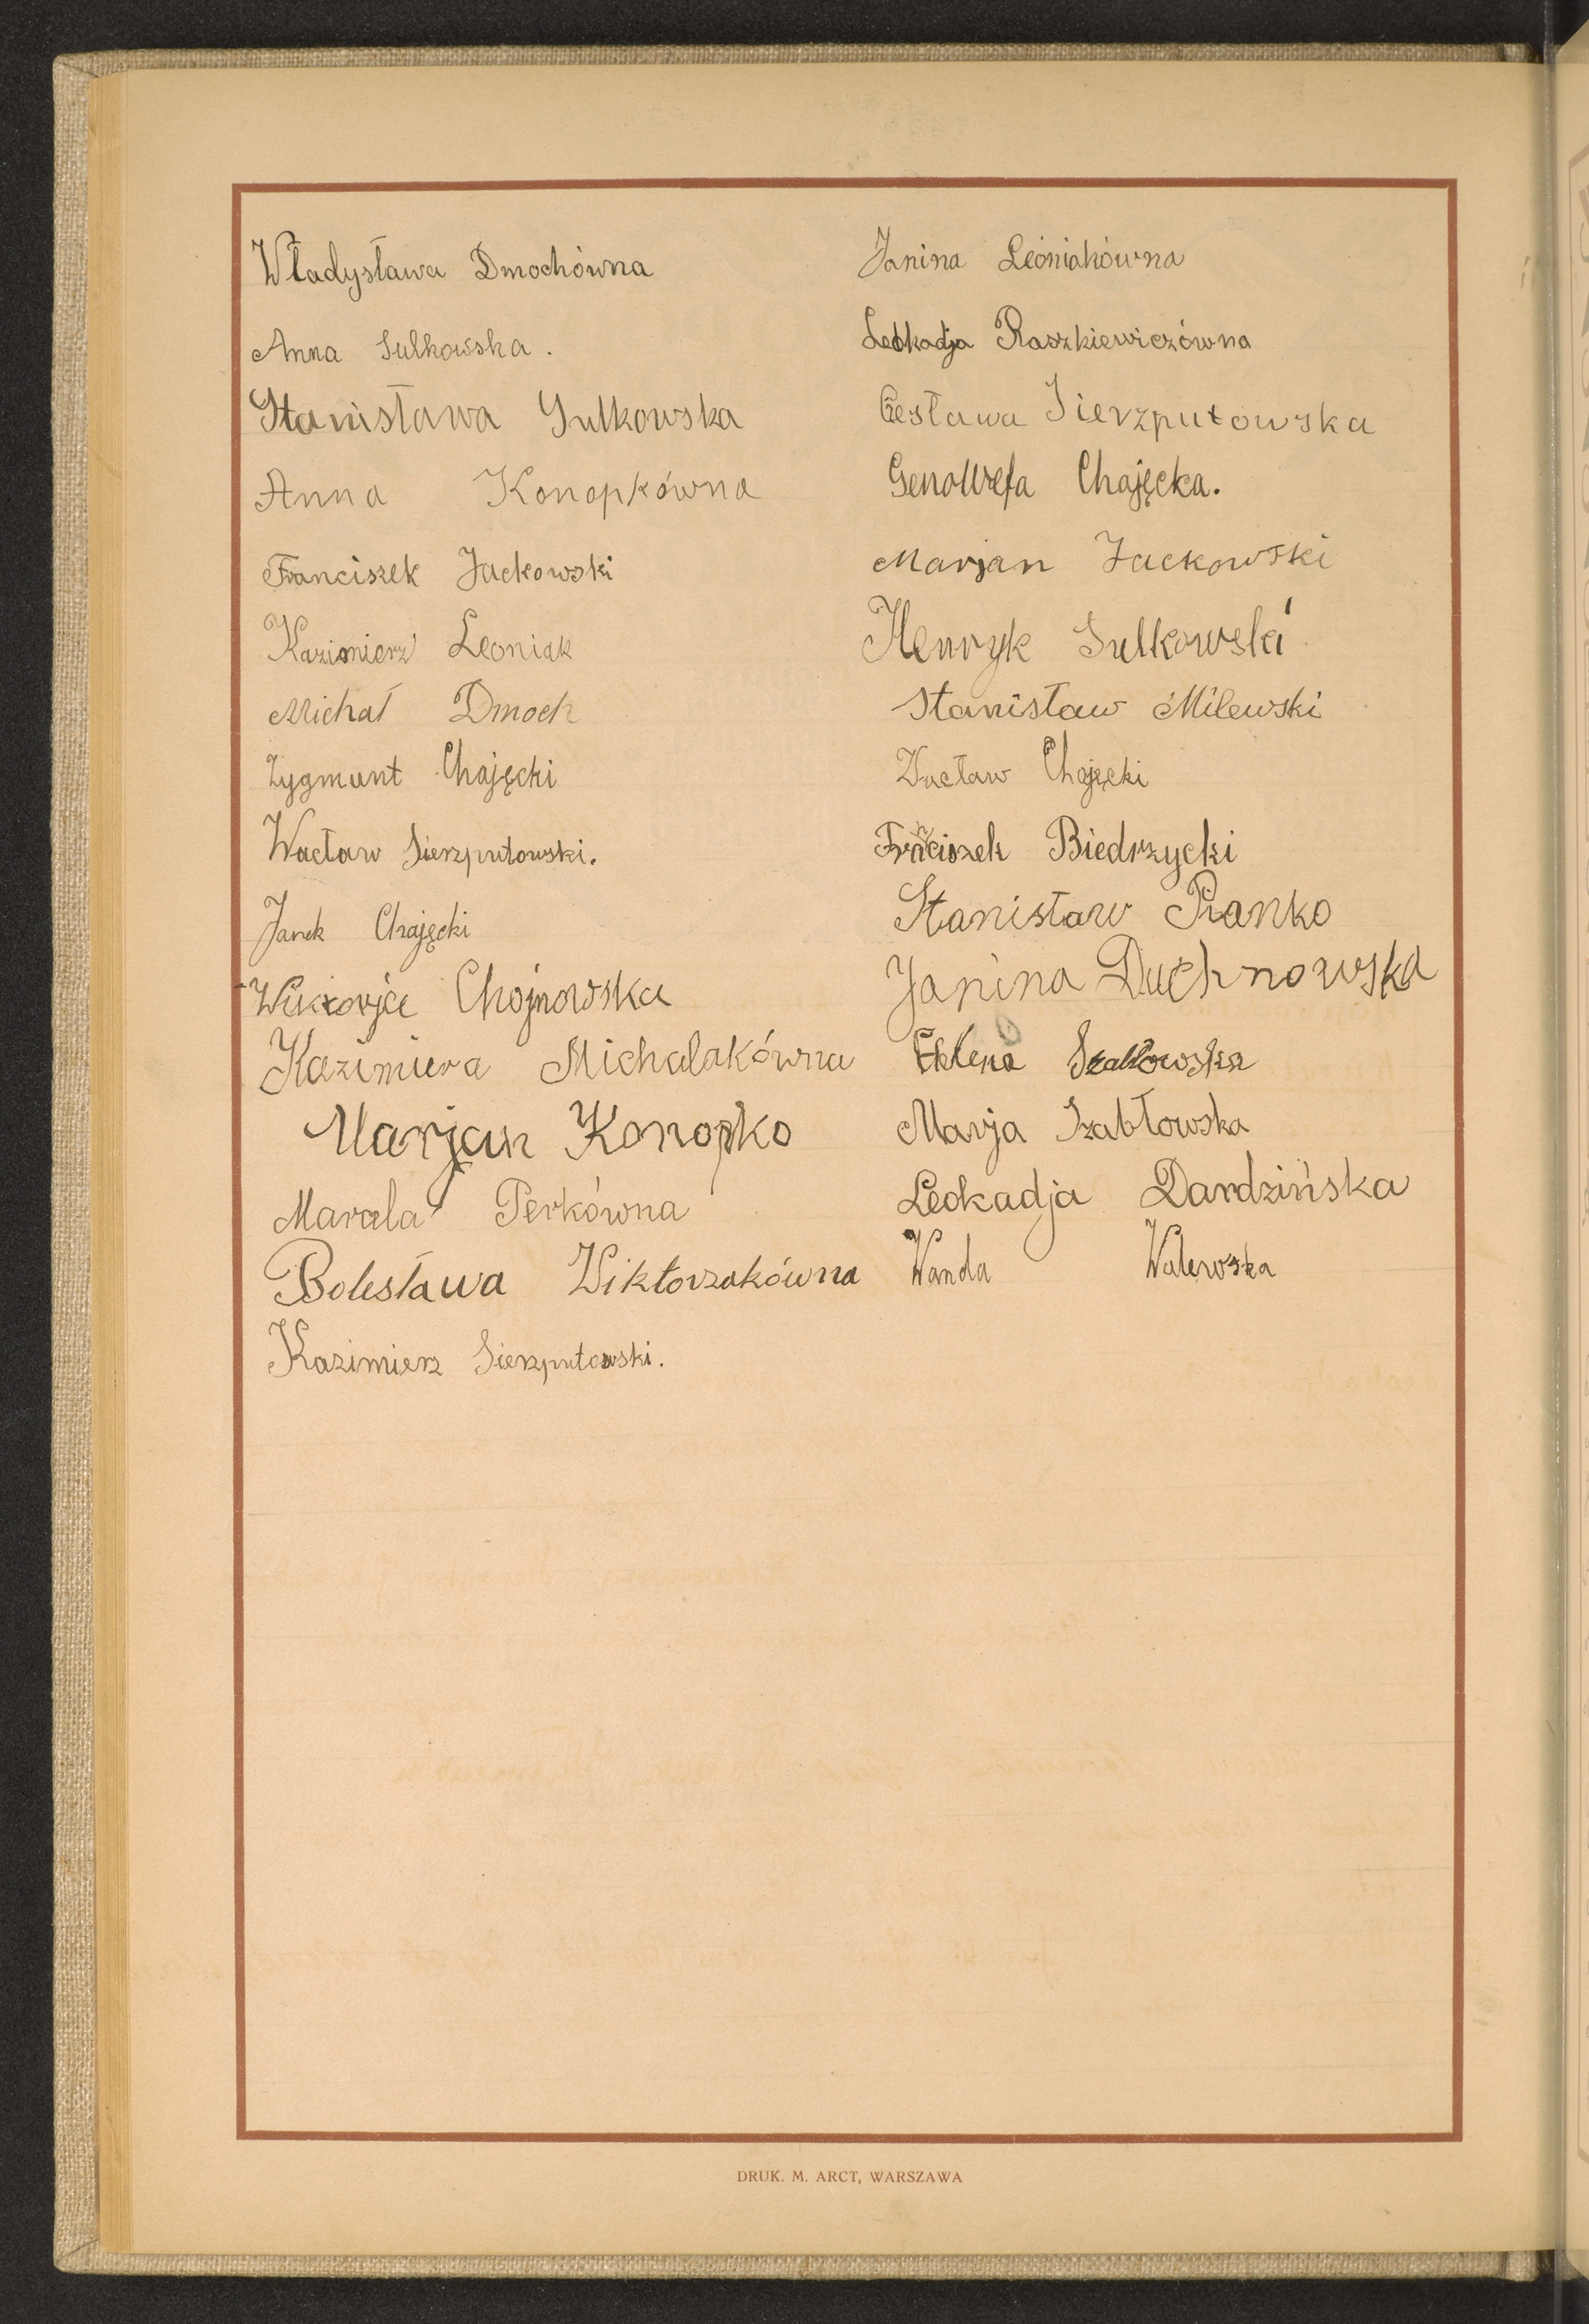 Władysława Dmochówna
Anna Sulkowska.
Stanisława Sulkowska
Anna Konopkówna
Franciszek Jackowski
Kazimierz Leoniak
Michał Dmoch
Zygmunt Chajęcki
Wacław Sierzputowski.
Janek Chajęcki
Wiktorja Chojnowska
Kazimiera Michalakówna
Marjan Konopko
Marcela Perkówna
Bolesława Wiktorzakówna
Kazimierz Sierzputowski.
Janina Leoniakówna
Leokadja Raszkiewiczówna
Czesława Sierzputowska
Genowefa Chajęcka.
Marjan Jackowski
Henryk Sulkowski
Stanisław Milewski
Wacław Chajęcki
Franciszek Biedrzycki
Stanisław Pianko
Janina Duchnowska
Helena Szabłowska
Marja Szabłowska
Leokadja Dardzińska
Wanda Walewska
DRUK. M. ARCT, WARSZAWA